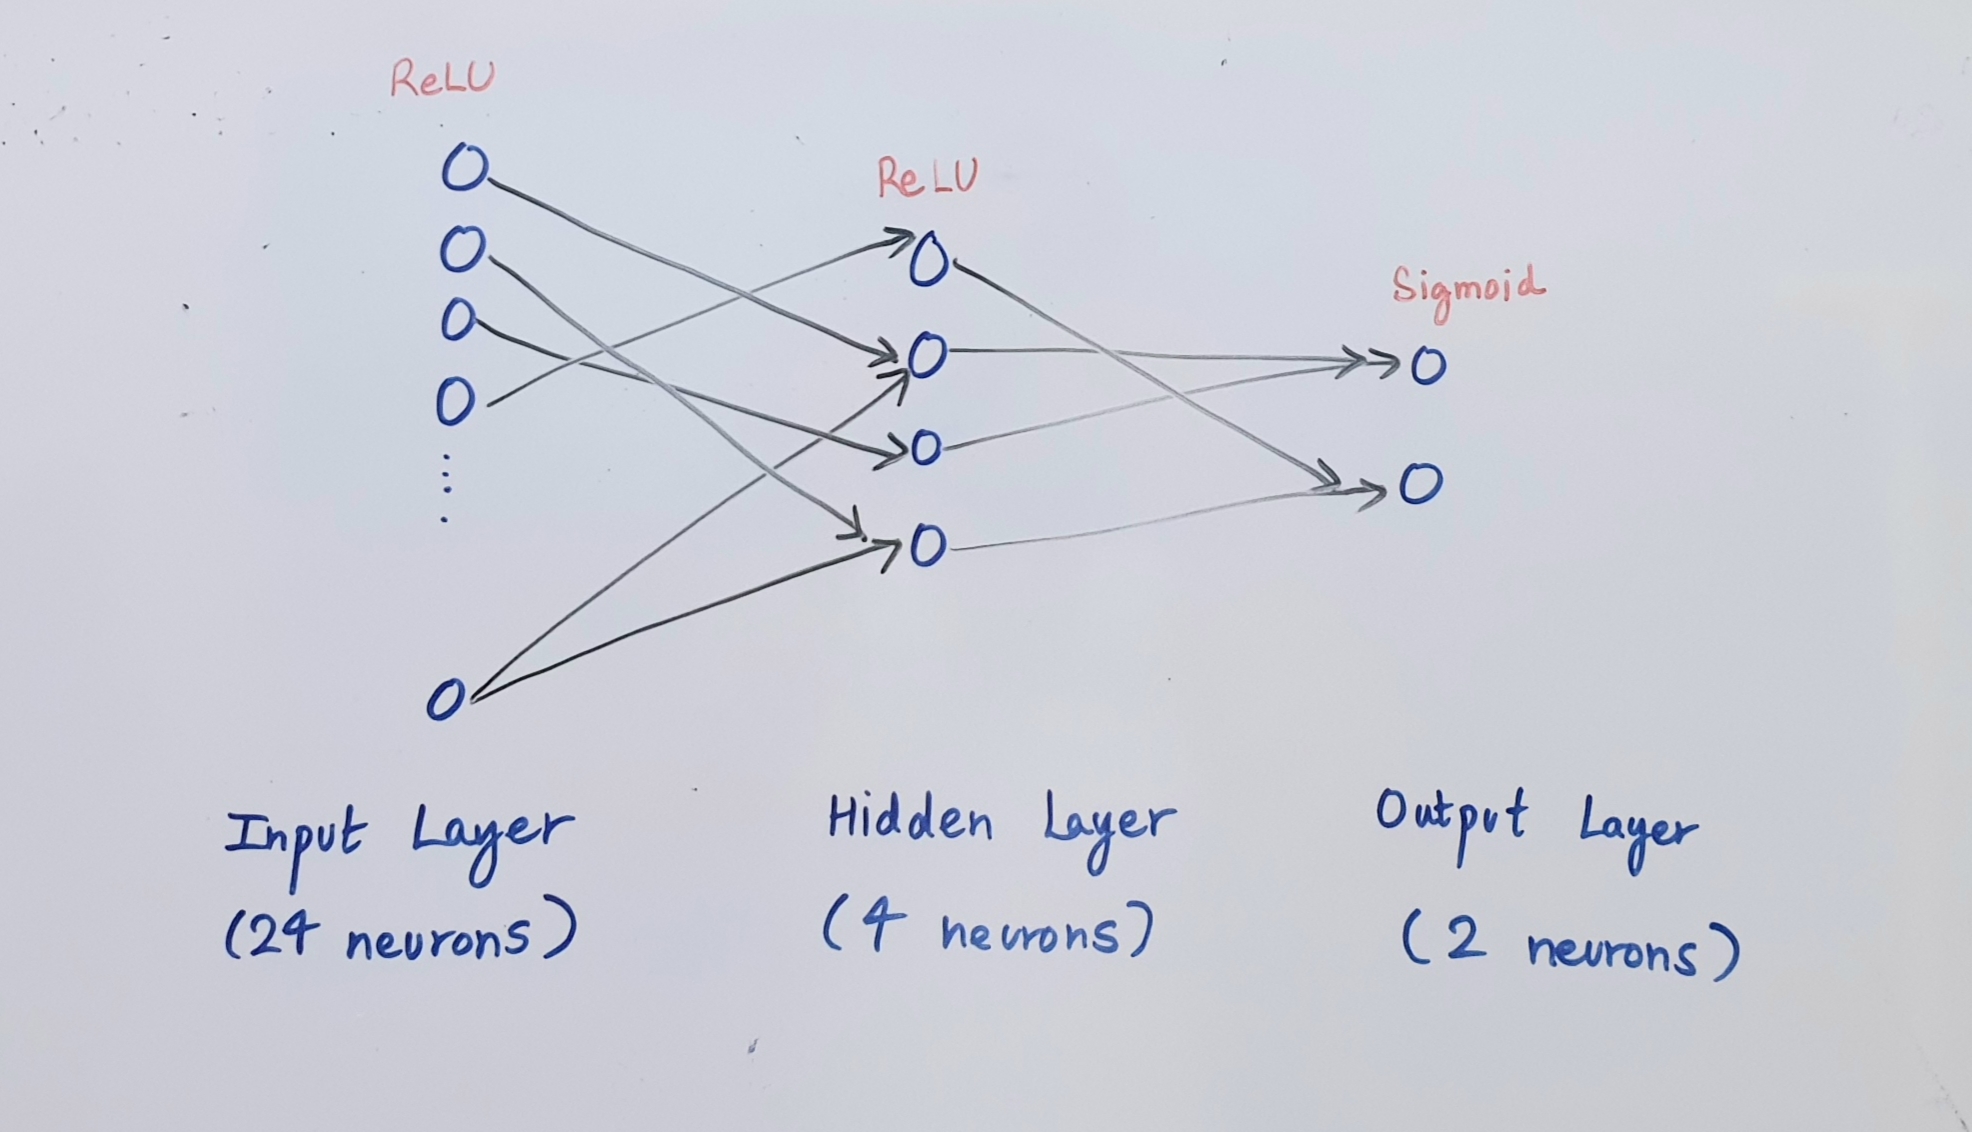 ReLU
ReLU
Sigmoid
Input Layer
(24 neurons)
Hidden Layer
(4 neurons)
Output Layer
(2 neurons)